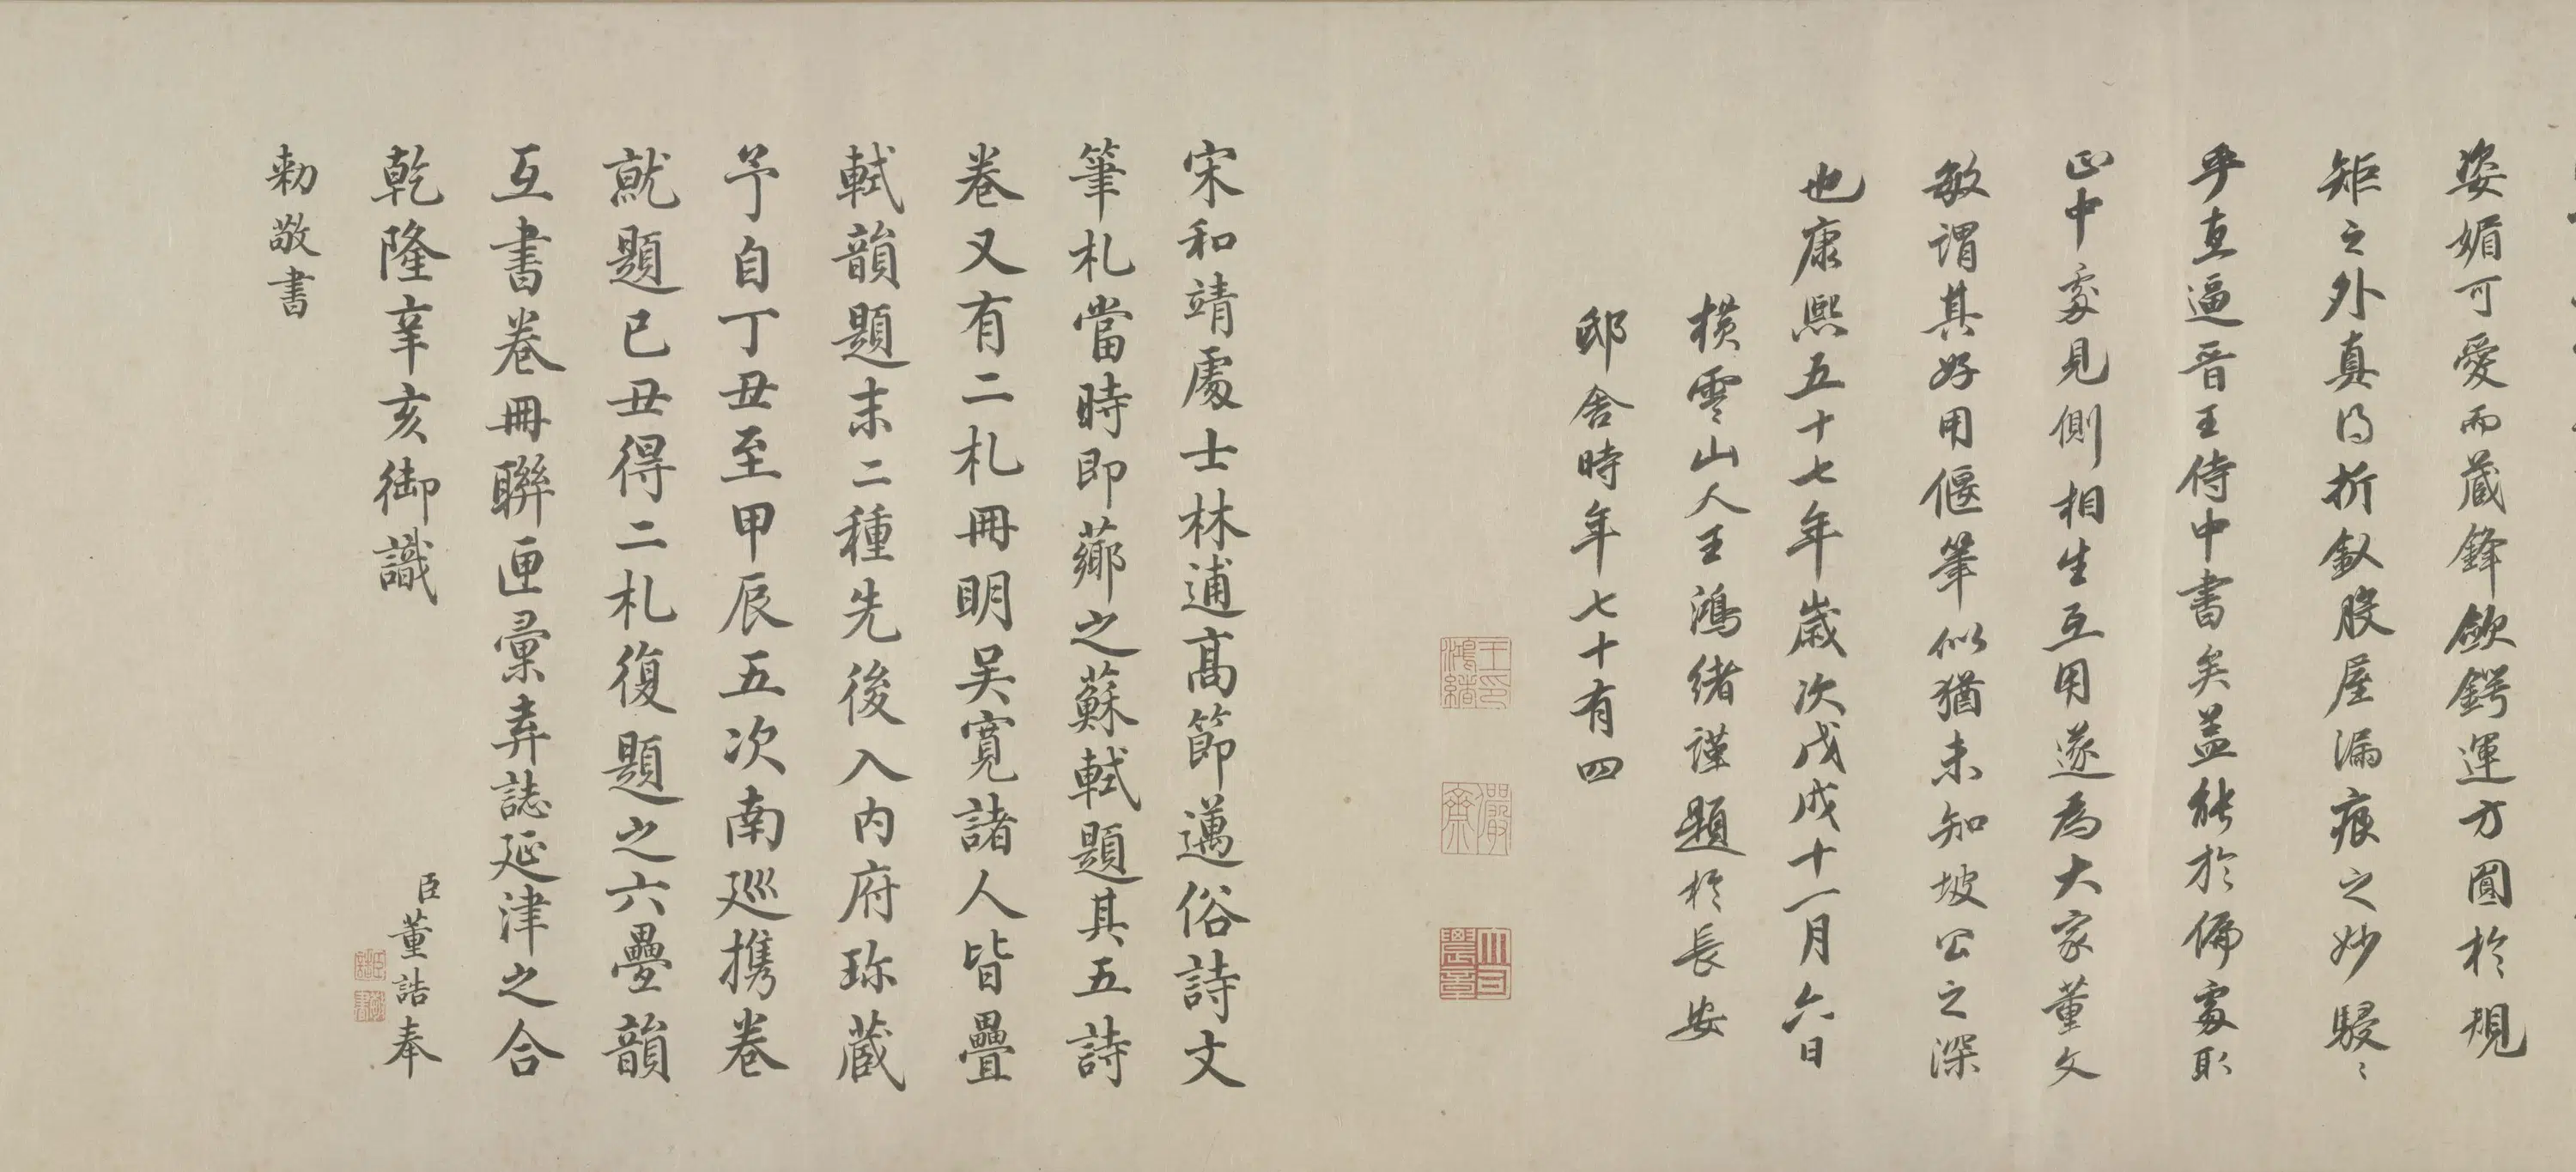 姿媚可愛而藏鋒斂鍔運方圓於規
矩之外真得折釵股屋漏痕之妙駸〻
乎直逼晉王侍中書矣蓋能於偏處取
正中處見側相生互用遂為大家董文
敏謂其好用偃筆似猶未知坡公之深
也康熙五十七年歲次戊戌十一月六日
橫雲山人王鴻緒謹題於長安
邸舍時年七十有四
王鴻緒印
儼齋
大司農章
宋和靖處士林逋高節邁俗詩文
筆札當時即薌之蘇軾題其五詩
卷又有二札冊明吳寬諸人皆疊
軾韻題末二種先後入內府珎藏
予自丁丑至甲辰五次南廵攜卷
就題已丑得二札復題之六疊韻
互書卷冊聯匣彙弆誌延津之合
乾隆辛亥御識
臣董誥奉
勅敬書